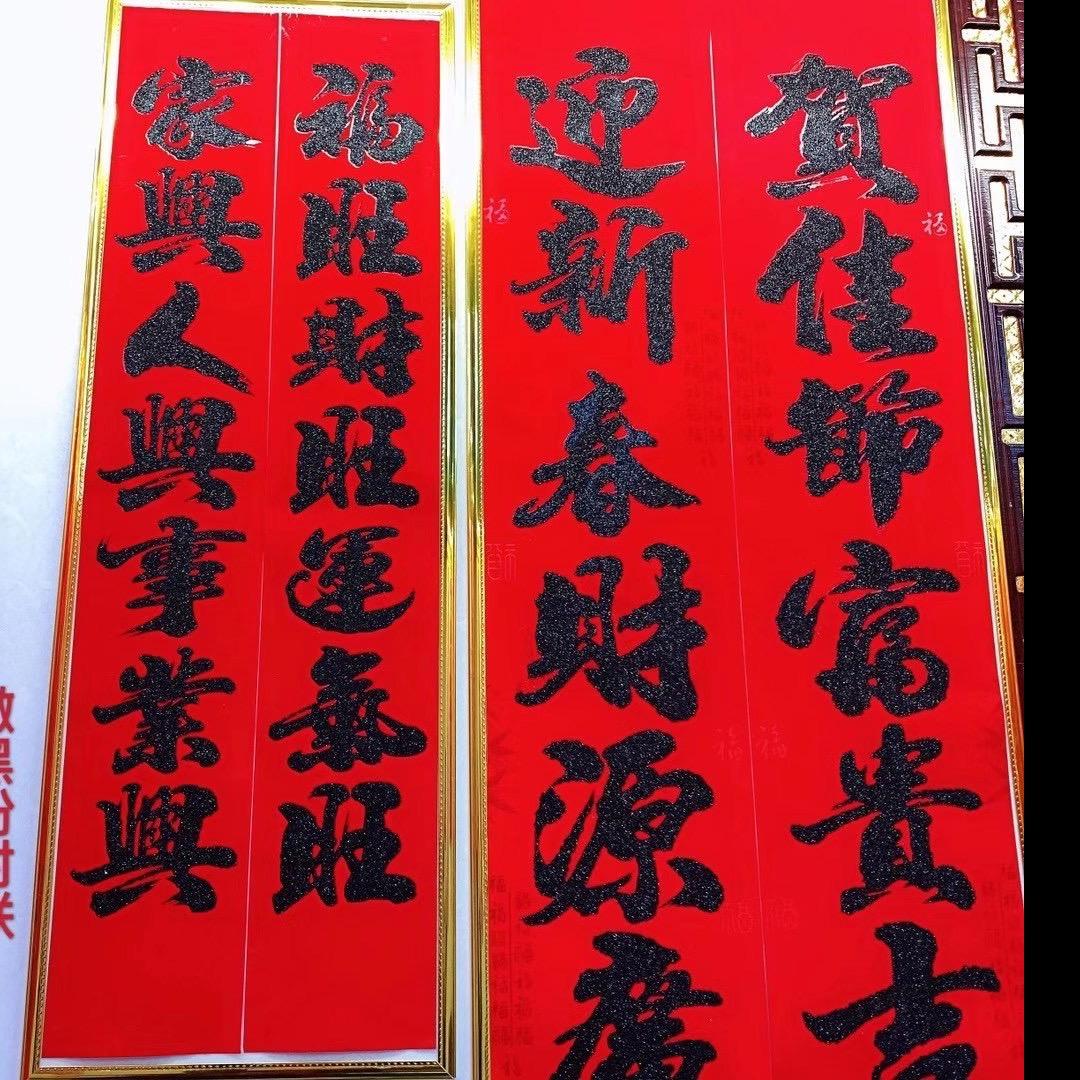 賀佳節富貴吉
迎新春財源廣
福旺財旺運氣旺
家興人興事業興
福
福
福福